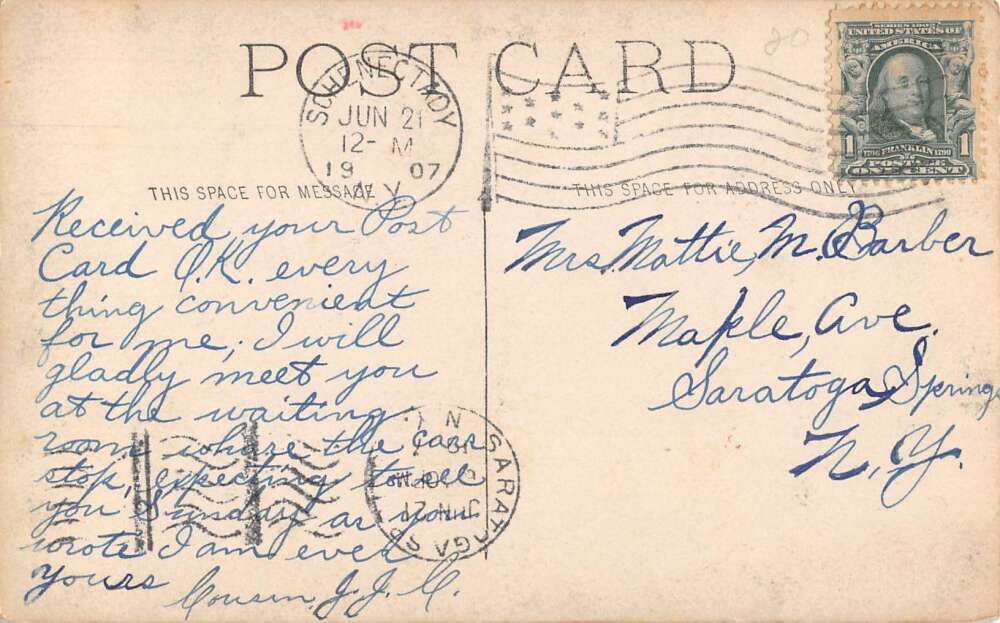 POST CARD
SCHENECTADY
JUN 21
12- M
19 07
N.Y.
SERIES 1902
UNITED STATES OF
AMERICA
1 1706 FRANKLIN 1790 1
POSTAGE
ONE CENT
20
THIS SPACE FOR MESSAGE
THIS SPACE FOR ADDRESS ONLY
Received your Post
Card O.K. every
thing convenient
for me, I will
gladly meet you
at the waiting
room, where the cars
stop, expecting to see
you Sunday as you
wrote I am ever
yours
Cousin, J.J.C.
Mrs. Mattie, M. Barber
Maple, Ave.
Saratoga, Spring
N.Y.
SARATOGA S
JUN 21